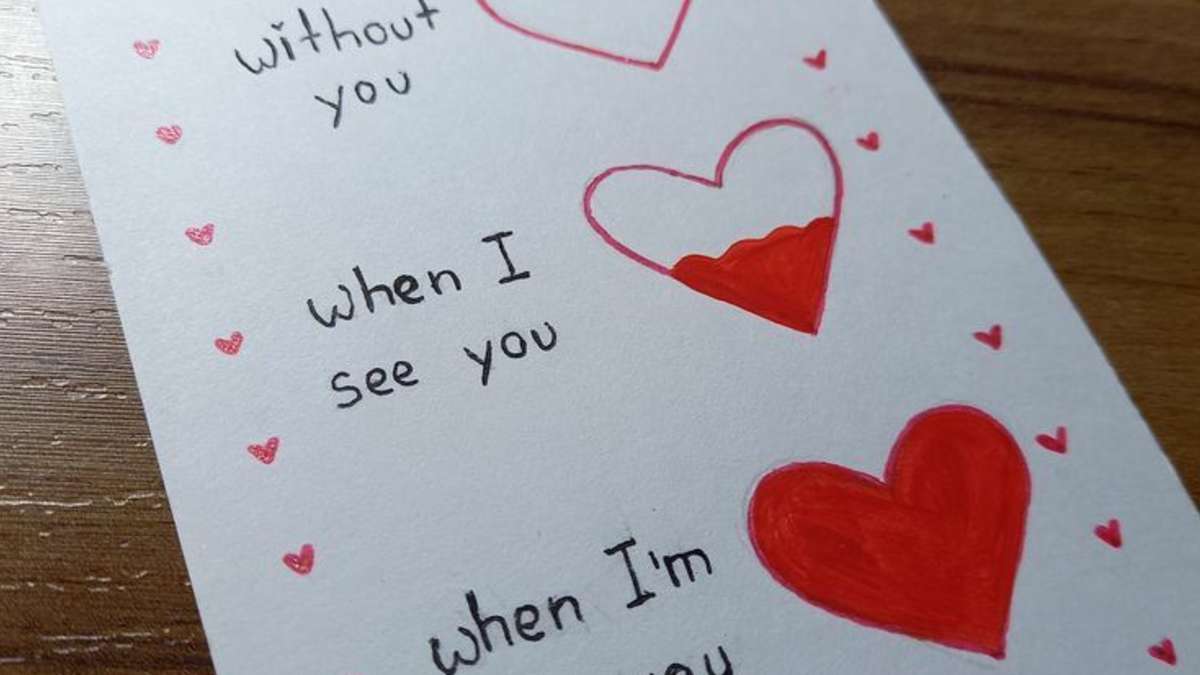 without
you
when I
see you
when I'm
you